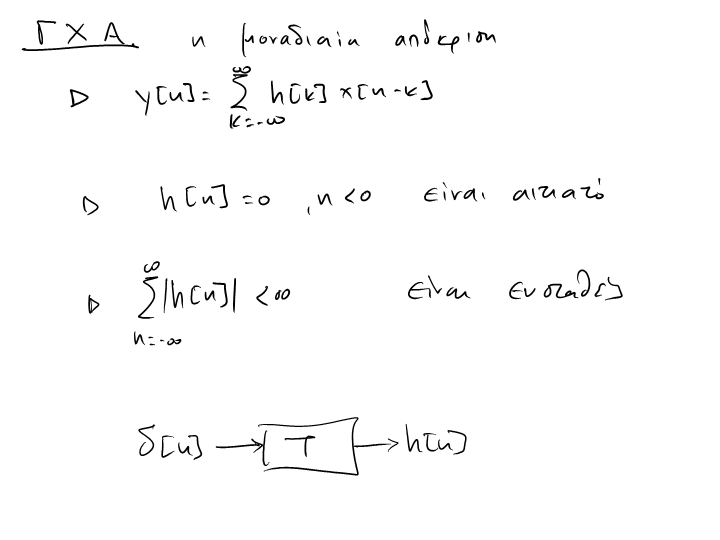 ΓΧΑ η μοναδιαία απόκριση
▷ y[n] = ∑_{k=-∞}^{∞} h[k] x[n-k]
▷ h[n] = 0 , n < 0 είναι αιτιατό
▷ ∑_{n=-∞}^{∞} |h[n]| < ∞ είναι ευσταθές
δ[n] → T → h[n]